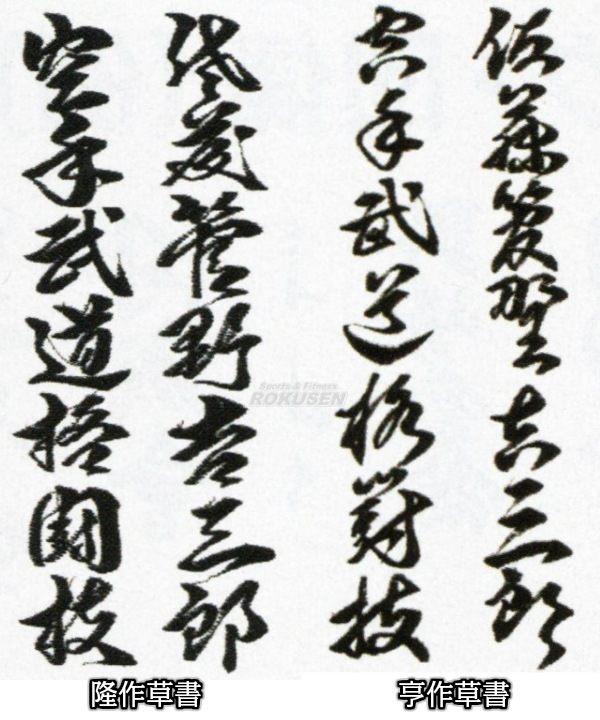 佐藤菅野吉三郎
空手武道格闘技
佐藤菅野吉三郎
空手武道格闘技
Sports & Fitness
ROKUSEN
隆作草書
亨作草書